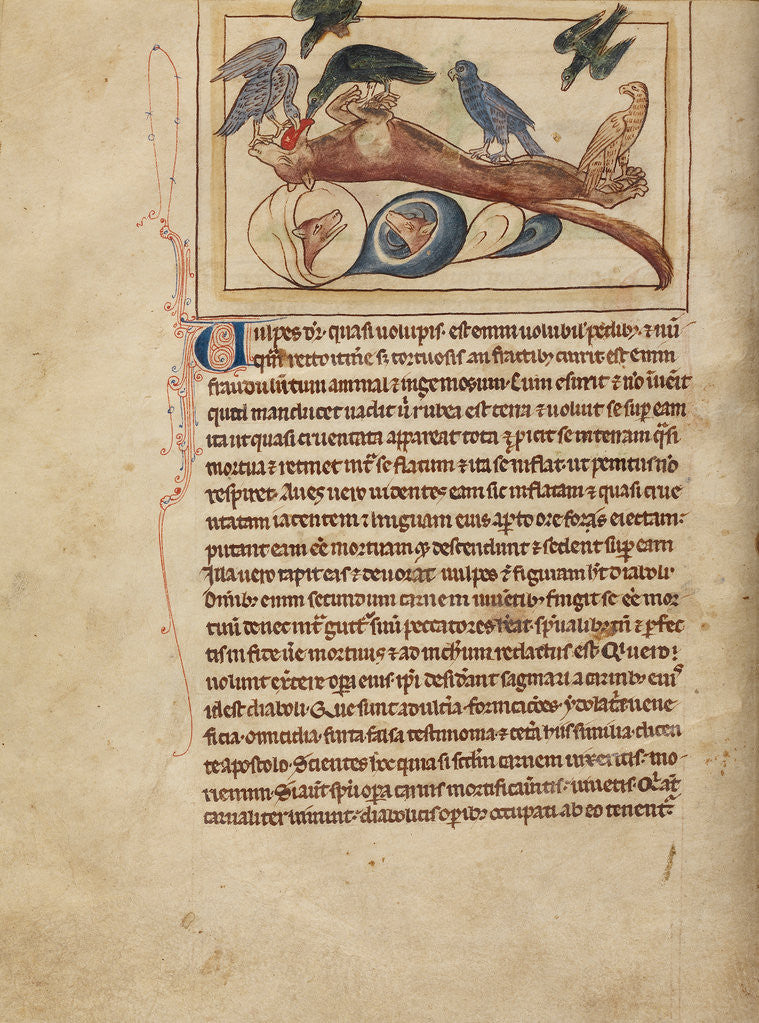 Uulpes dr̄ · quasi uolupis · est enim uolubil' pedib; · ⁊ nū
qm̄ recto itin̄e s; tortuosis an fractib; currit est enim
fraudulentum animal ⁊ ingeniosum · Cum esurit ⁊ nō inuenit
quod manducet uadit ubi rubea est terra ⁊ uoluit se sup eam
ita ut quasi cruentata appareat tota ⁊ p̄icit se in terram q̄si
mortua ⁊ retinet int̄ se flatum ⁊ ita se inflat · ut penitus nō
respiret · Aues uero uidentes eam sic inflatam ⁊ quasi crue
ntatam iacentem ⁊ linguam eius apto ore foras eiectam ·
putant eam eē mortuam q; descendunt ⁊ sedent sup eam
Illa uero rapit eas ⁊ deuorat uulpes ⁊ figuram ht̄ diaboli ·
Omib; enim secundum carnem uiuentib; fingit se eē mor
tuū donec int̄ gutt̄ suū peccatores sp̄ualib; tn̄ ⁊ pfec
tis in fide uere mortuus ⁊ ad nichum redactus est · Qui uero
uolunt exercere opa eius · ipi desid̄ant saginari a carnib; eius
id est diaboli · Que sunt adult̄ia · fornicac̄oes · ydolat̄e uene
ficia · omicidia · furta falsa testimonia ⁊ cet̄a hiis similia · dicen
te apostolo · Scientes hoc quia si scdm carnem uixeritis · mo
riemini · Si aut̄ sp̄u opa carnis mortificau̅itis · uiuetis · Qui aut̄
carnaliter uiuunt · diabolicis opib; occupati ab eo tenent̄ ·